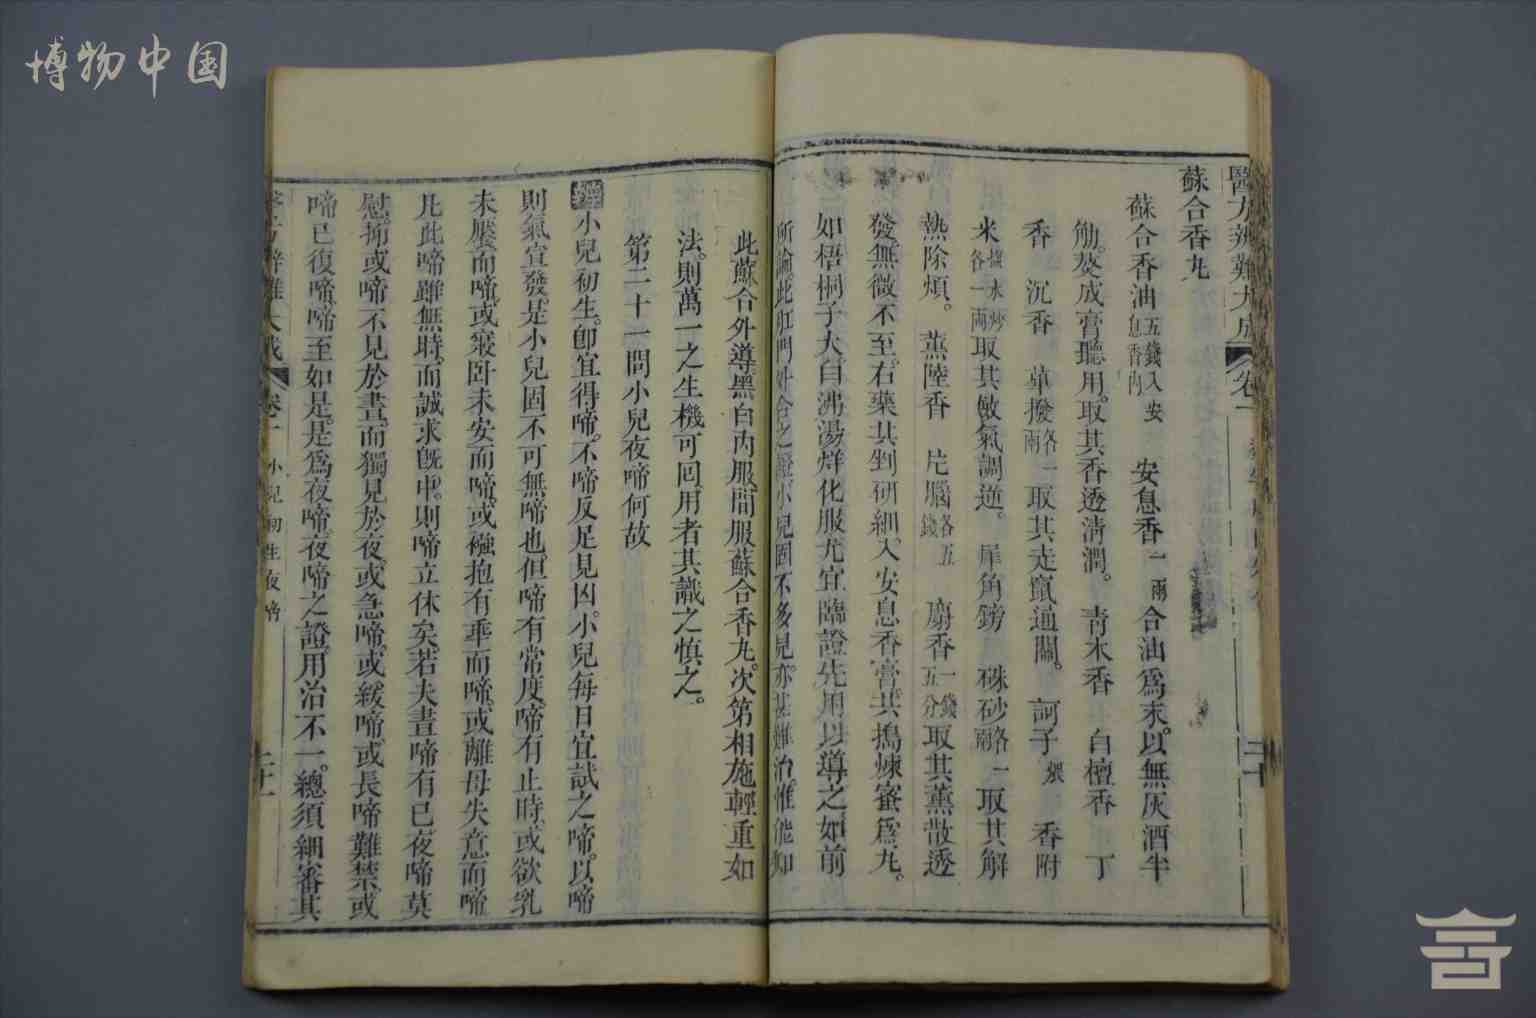 博物中国
醫方辨難大成 卷一
二十
蘇合香丸
蘇合香油五錢入安息香內 安息香一兩合油爲末以無灰酒半
觔熬成膏聽用取其香透清潤 青木香 白檀香 丁
香 沉香 蓽撥各一兩取其走竄通關 訶子煨 香附
米搥水炒各一兩取其斂氣調逆 犀角鎊 硃砂各一兩取其解
熱除煩 薰陸香 片腦各五錢 麝香一錢五分取其薰散透
發無微不至右藥共剉研細入安息香膏共搗煉蜜爲丸
如梧桐子大白沸湯烊化服尤宜臨證先用以導之如前
所論此肛門外合之證小兒固不多見亦甚難治惟能如
此蘇合外導黑白內服間服蘇合香丸次第相施輕重如
法則萬一之生機可回用者其識之慎之
第二十一問小兒夜啼何故
辯小兒初生卽宜得啼不啼反足見凶小兒每日宜試之啼以啼
則氣宣發是小兒固不可無啼也但啼有常度啼有止時或欲乳
未饜而啼或寢卧未安而啼或襁抱有乖而啼或離母失意而啼
凡此啼雖無時而誠求旣中則啼立休矣若夫晝啼有已夜啼莫
慰抑或啼不見於晝而獨見於夜或急啼或緩啼或長啼難禁或
啼已復啼啼至如是是爲夜啼夜啼之證用治不一總須細審其
醫方辨難大成 卷一 小兒初生夜啼
二十一